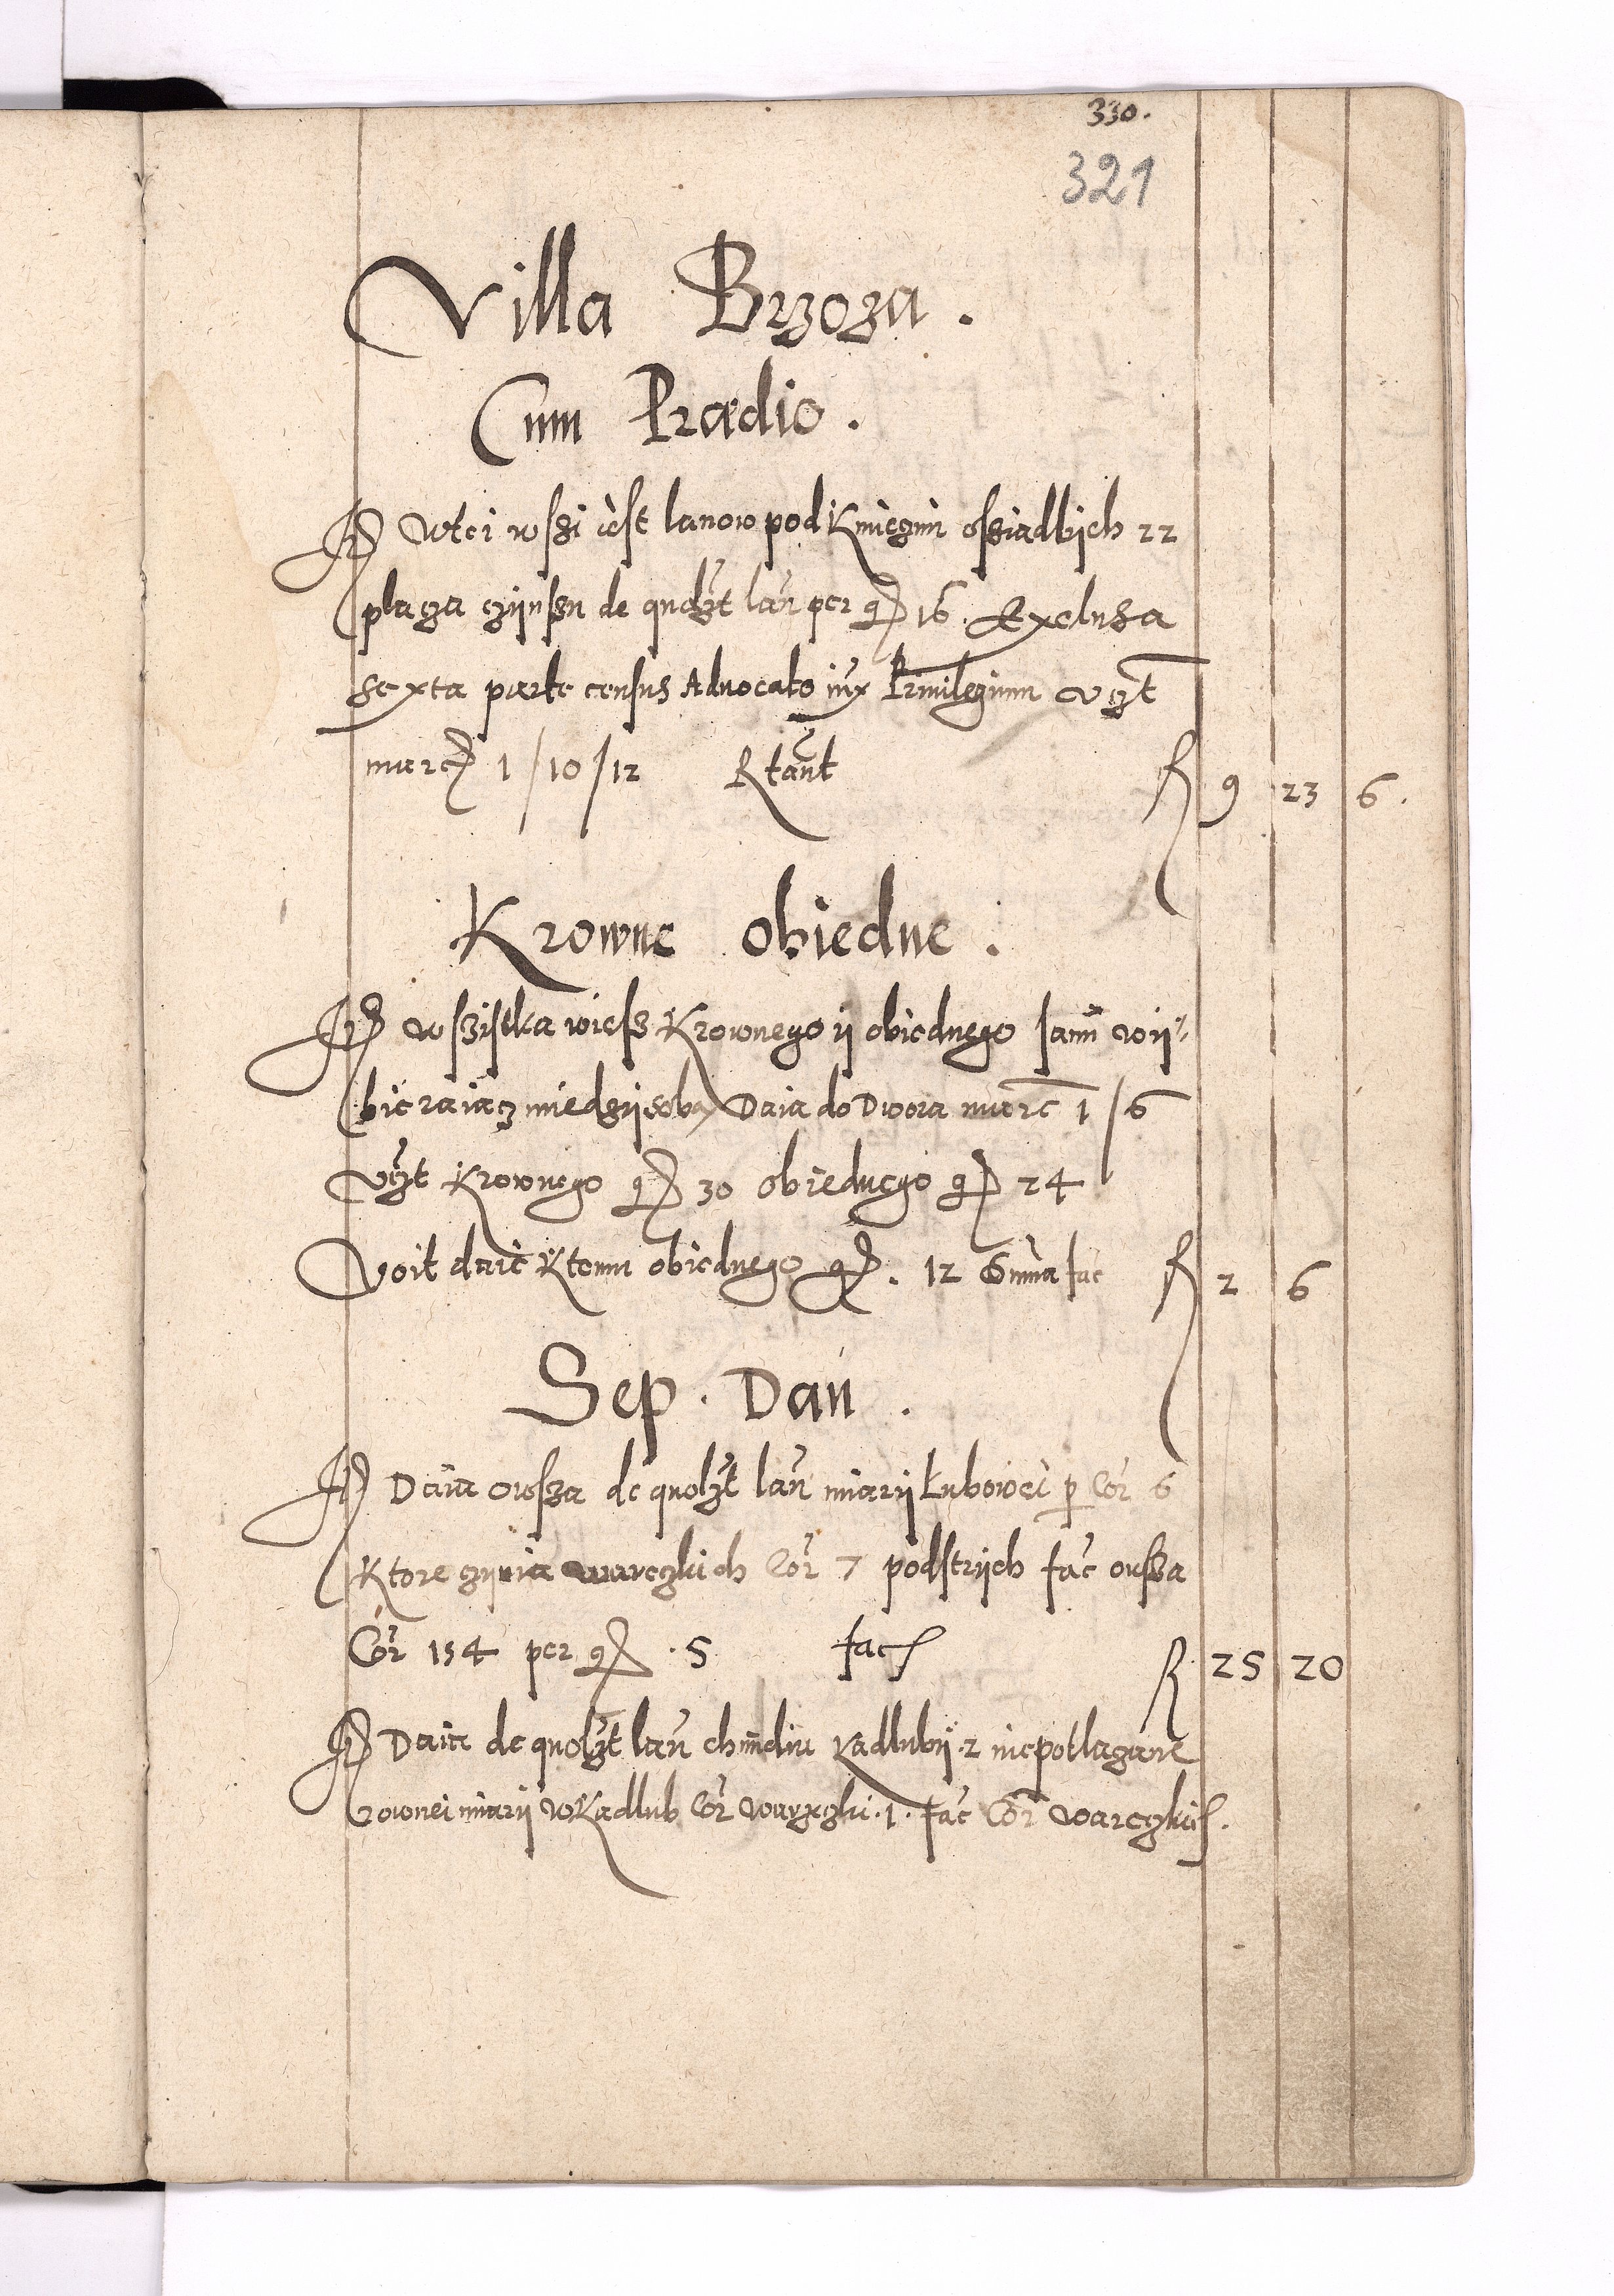 330.
321
Villa Brzoza.
Cum Prædio.
It Wtei wszi iest lanow pod Kmieczmi osziadlÿch 22
placza czÿnszu de quolzt lan per g 16. Exclusa
sexta parte census Aduocato iux Priuilegium vzt
marc 1/10/12 Rtant f 9 23 6.
Krowne obiedne.
It wszistka wiesz Krownego ÿ obiednego sami wÿ
bieraiacz miedzÿ soba Daia do Dwora marc 1/6
vtzt Krownego g 30 obiednego g 24
Voit daie Ktemu obiednego g. 12 Suma fac f 2 6
Sep. Dan.
It Daia owsza de quolzt lan miarÿ Łubowei p Cor 6
Ktore czÿnia warczkich Cor 7 podstrÿch fac owsza
Cor 154 per g. 5 fac f 25 20
It Daia de quolzt lan chmeliu Kadlubÿ 2 niepotlaczane
rownei miarÿ w Kadlub Cor warczki. 1. fac Cor warczkis.